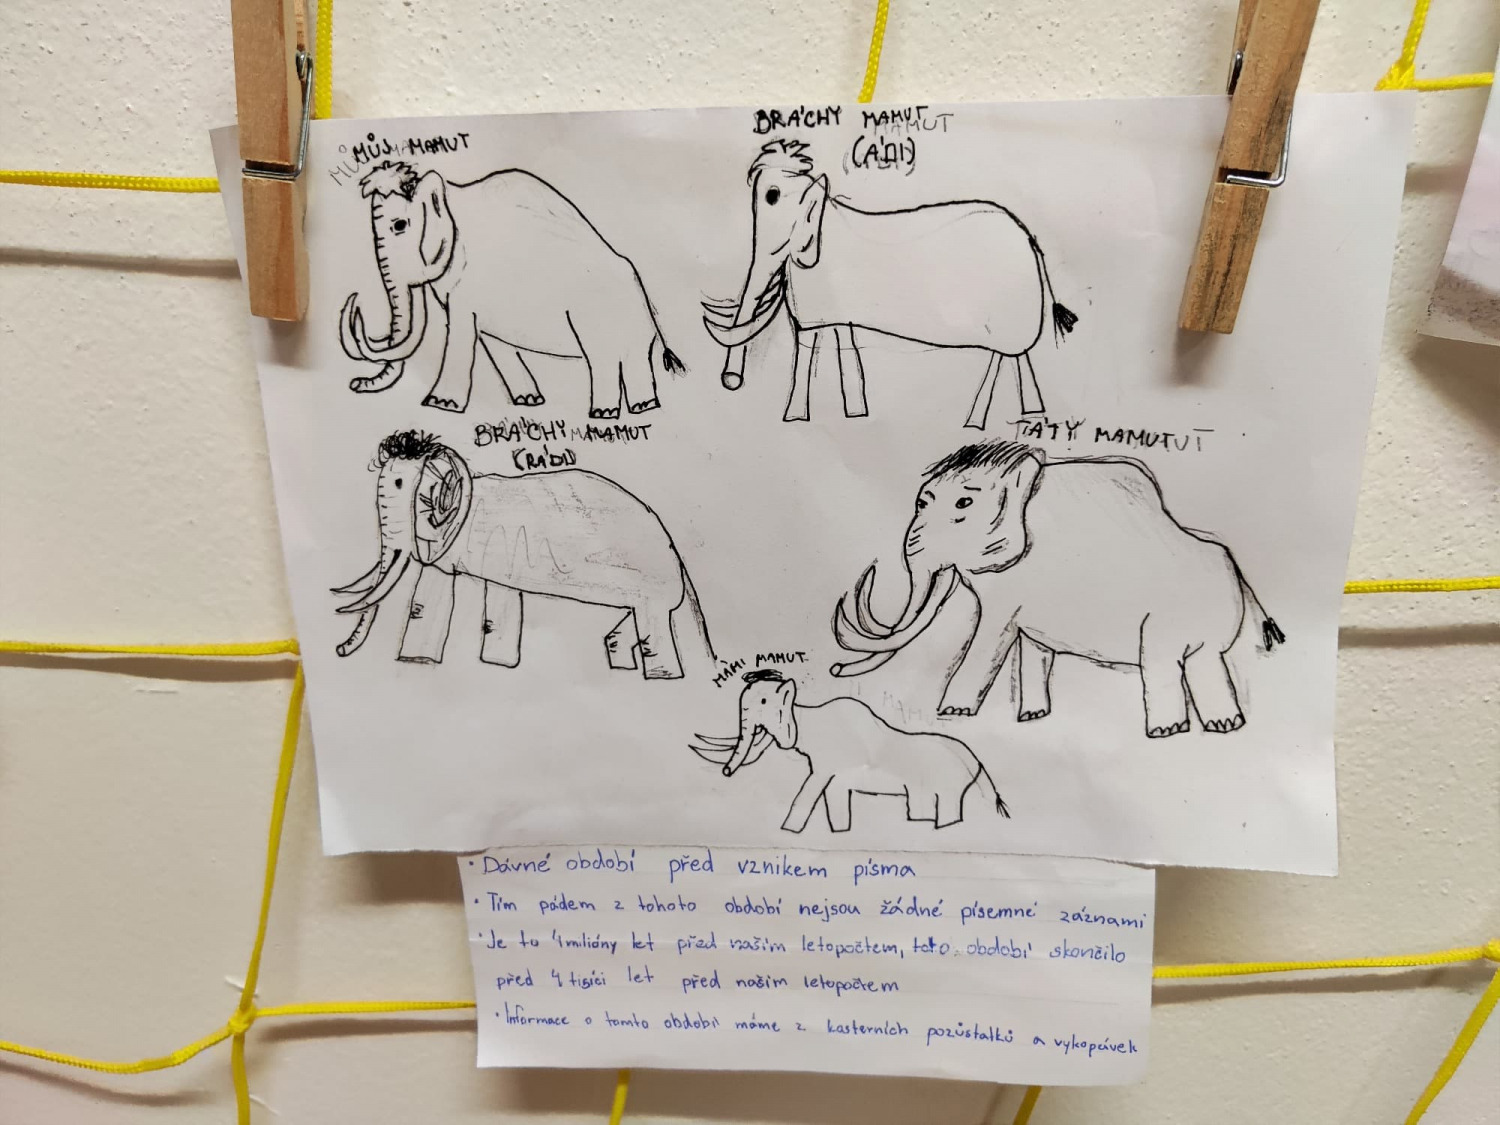 MŮJ MAMUT
BRÁCHY MAMUT
(ÁĎI)
BRÁCHY MAMUT
(RÁĎI)
TÁTY MAMUT
MÁMI MAMUT
• Dávné období před vznikem písma
• Tím pádem z tohoto období nejsou žádné písemné záznami
• Je to 4 milióny let před naším letopočtem, toto období skončilo
před 4 tisíci let před naším letopočtem
• Informace o tomto období máme z kosterních pozůstatků a vykopávek